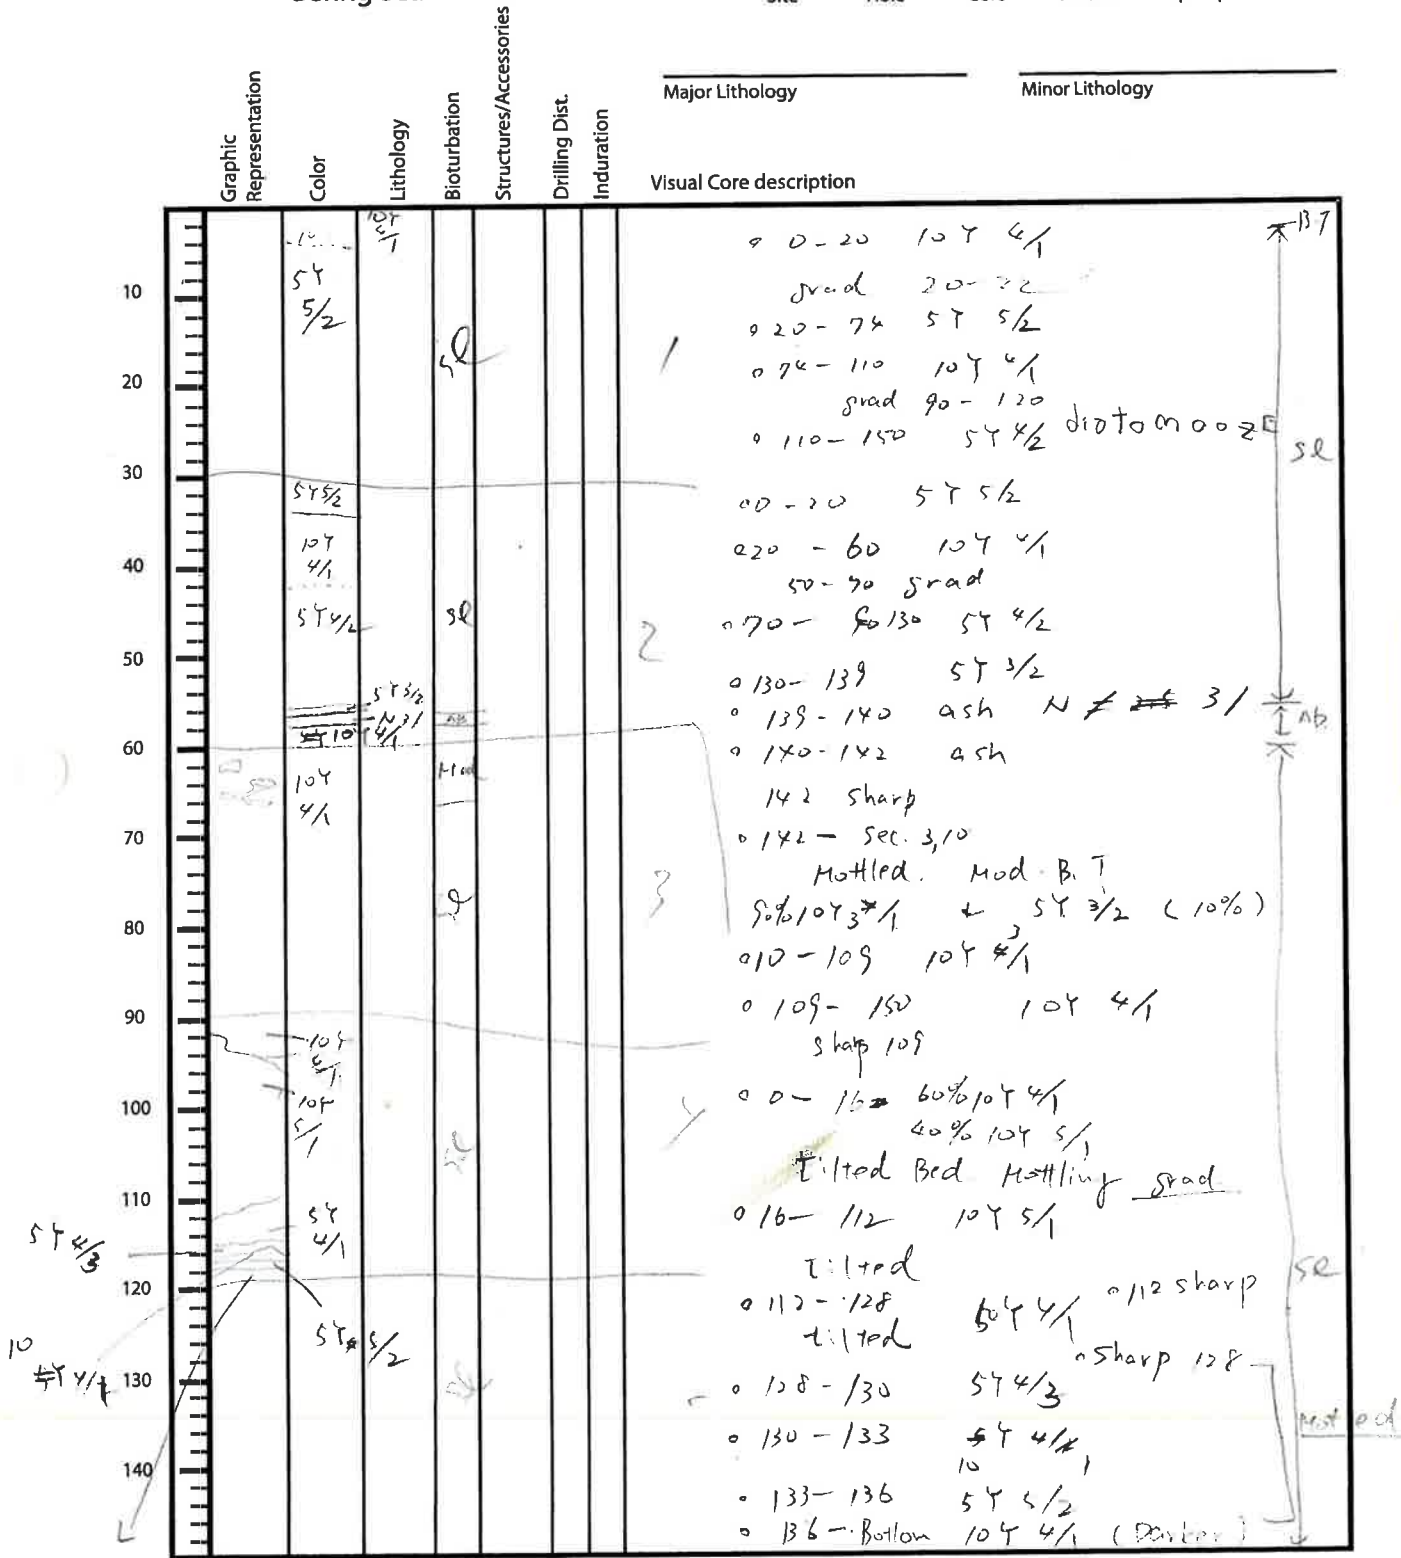 Graphic Representation
Color
Lithology
Bioturbation
Structures/Accessories
Drilling Dist.
Induration
Major Lithology
Minor Lithology
Visual Core description
10
20
30
40
50
60
70
80
90
100
110
120
130
140
10Y
4/1
5Y
5/2
5Y5/2
10Y
4/1
5Y4/2
5Y3/2
N3/
10Y 4/1
10Y
4/1
10Y
4/1
10Y
5/1
5Y
4/1
5Y 4/3
5Y 5/2
10
Y 4/1
sl
sl
nb
Mod
1
2
3
BT
0-20 10Y 4/1
grad 20-22
20-74 5Y 5/2
74-110 10Y 4/1
grad 90-120
110-150 5Y 4/2 diatom ooze
sl
0-20 5Y 5/2
20-60 10Y 4/1
50-70 grad
70- 130 5Y 4/2
130-139 5Y 3/2
139-140 ash N 3/
nb
140-142 ash
142 sharp
142- Sec. 3,10
Mottled. Mod. B.T
90% 10Y 3/1 + 5Y 3/2 (10%)
10-109 10Y 3/1
109-150 10Y 4/1
sharp 109
0-16 60% 10Y 4/1
40% 10Y 5/1
Tilted Bed Mottling grad
16-112 10Y 5/1
Tilted
sl
112-128 5Y 4/1 112 sharp
tilted
Sharp 128
128-130 5Y 4/3
Mottled
130-133 10Y 4/1
133-136 5Y 5/2
136-Bottom 10Y 4/1 (Darker)